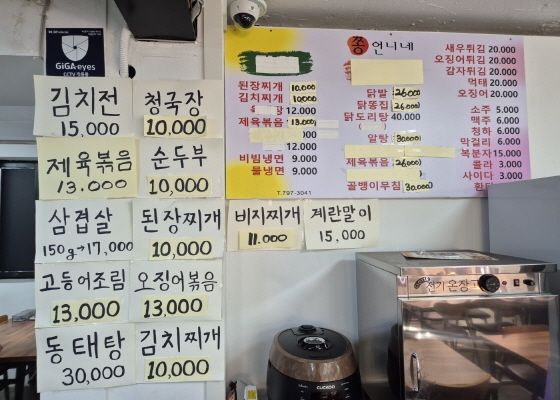 GiGA eyes
CCTV 작동중
김치전
15,000
청국장
10,000
제육볶음
13.000
순두부
10,000
삼겹살
150g→17,000
된장찌개
10,000
고등어조림
13,000
오징어볶음
13,000
동태탕
30,000
김치찌개
10,000
비지찌개
11.000
계란말이
15,000
쫑언니네
된장찌개 10,000
김치찌개 10,000
12.000
제육볶음 13.000
12.000
비빔냉면 9.000
물냉면 9.000
T.797-3041
닭발 26000
닭똥집 26,000
닭도리탕 40.000
알탕 30,000
제육볶음 26,000
골뱅이무침 30,000
새우튀김 20.000
오징어튀김 20.000
감자튀김 20.000
먹태 20.000
오징어 20.000
소주 5.000
맥주 6.000
청하 6.000
막걸리 6.000
복분자 15.000
콜라 3.000
사이다 3.000
환타
전기온장
CUCKOO